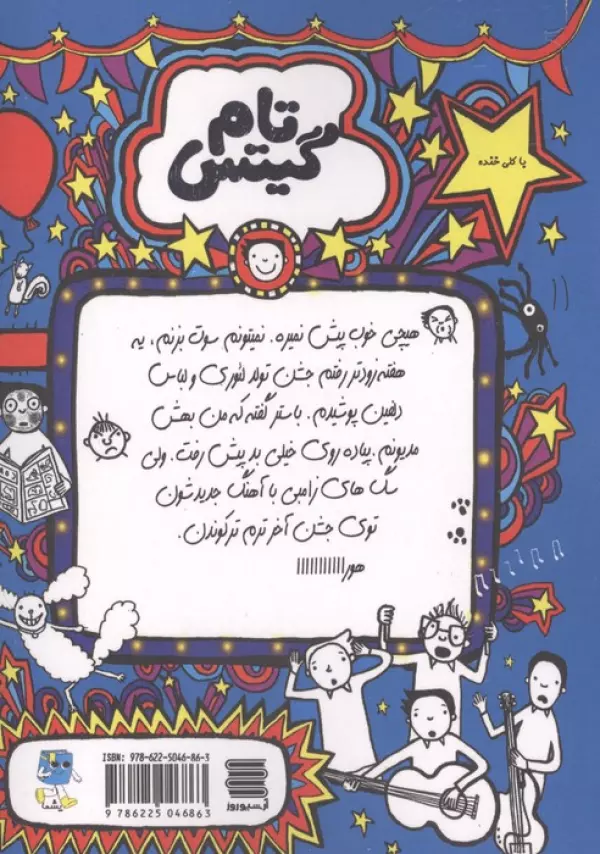 تام
گیتس
با کلی خنده
هیچی خوب پیش نمیره. نمیتونم سوت بزنم، یه
هفته زودتر رفتم جشن تولد لئوری و لباس
دلفین پوشیدم. باستر گفته که من بهش
مدیونم. پیاده روی خیلی بد پیش رفت. ولی
سگ های زامبی با آهنگ جدیدشون
توی جشن آخر ترم ترکوندن.
هورااااااااااا
ISBN: 978-622-5046-86-3
9 786225 046863